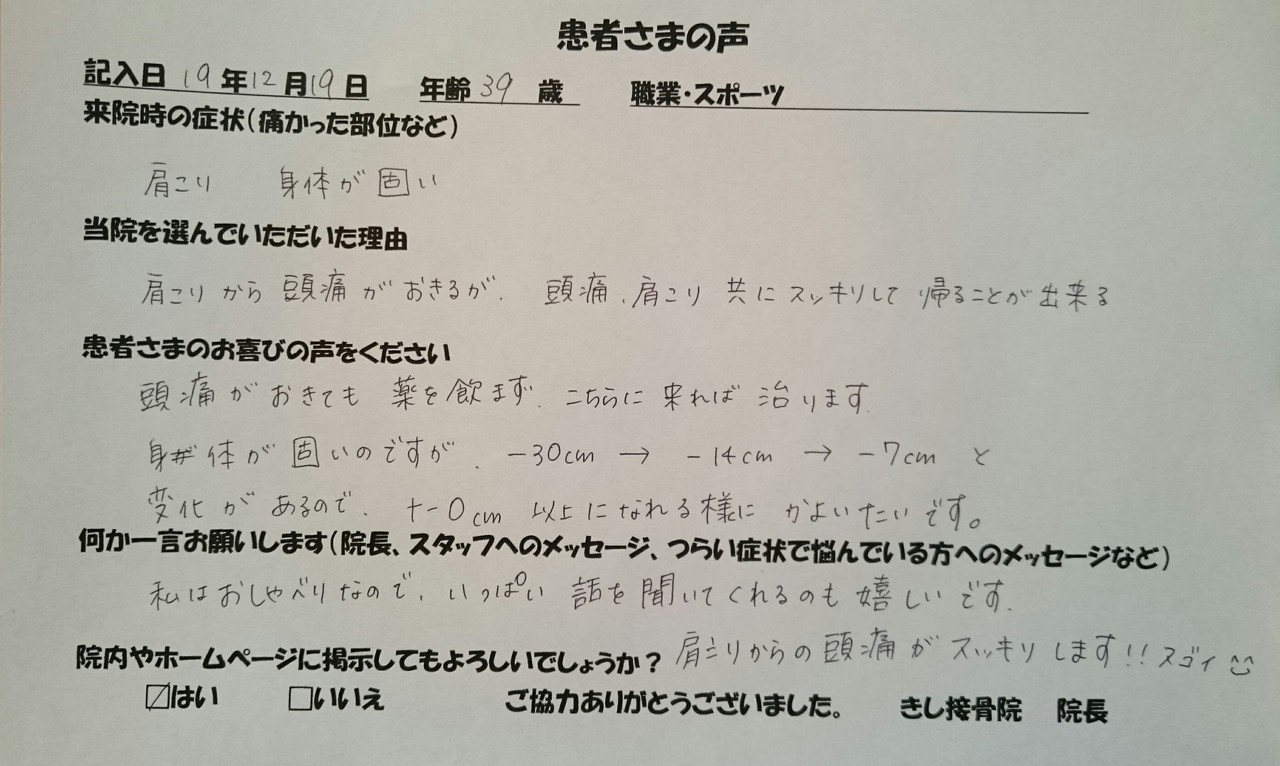 患者さまの声
記入日 19年12月19日 年齢 39 歳 職業・スポーツ
来院時の症状(痛かった部位など)
肩こり 身体が固い
当院を選んでいただいた理由
肩こりから頭痛がおきるが、頭痛、肩こり共にスッキリして帰ることが出来る
患者さまのお喜びの声をください
頭痛がおきても薬を飲まず、こちらに来れば治ります。
身体が固いのですが、-30cm → -14cm → -7cm と
変化があるので、+-0cm 以上になれる様にかよいたいです。
何か一言お願いします(院長、スタッフへのメッセージ、つらい症状で悩んでいる方へのメッセージなど)
私はおしゃべりなので、いっぱい話を聞いてくれるのも嬉しいです。
肩こりからの頭痛がスッキリします!!スゴイ
院内やホームページに掲示してもよろしいでしょうか?
☑はい □いいえ ご協力ありがとうございました。 きし接骨院 院長